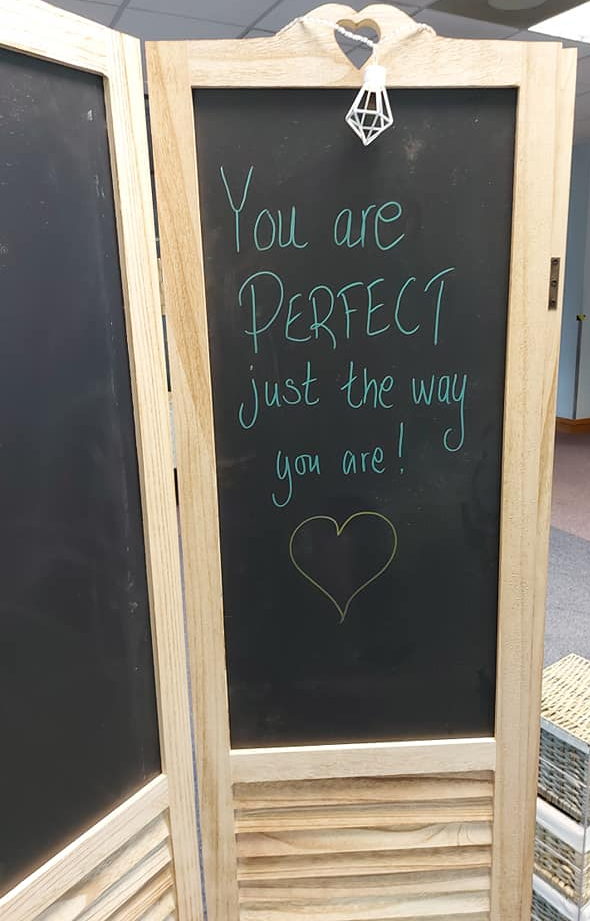 You are
PERFECT
just the way
you are!